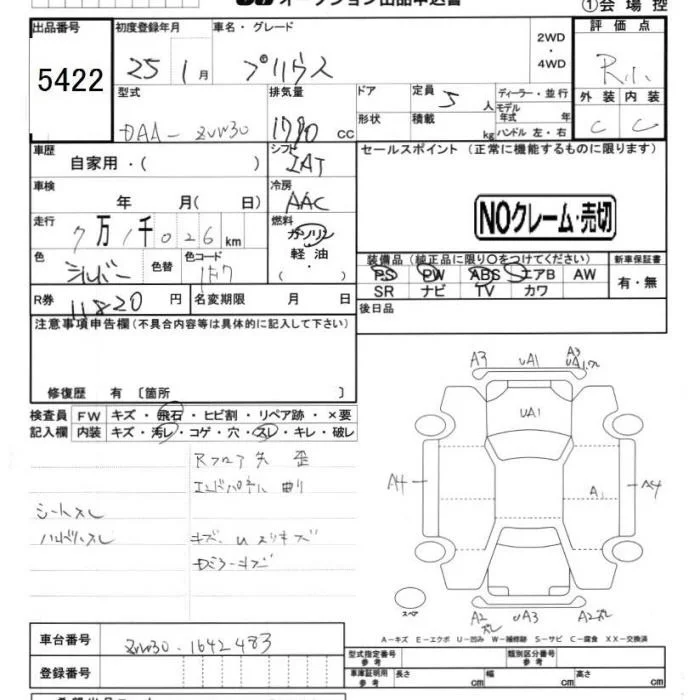 オークション出品申込書 ①会場控
出品番号 初度登録年月 車名・グレード 2WD・4WD 評価点
5422 25 1月 プリウス R小
型式 排気量 ドア 定員 5人 ディーラー・並行 外装 内装
DAA-ZVW30 1790 cc 形状 積載 kg モデル年式 年 ハンドル 左・右 C C
車歴 自家用・( ) シフト IAT セールスポイント (正常に機能するものに限ります)
車検 年 月( 日) 冷房 AAC
NOクレーム・売切
走行 7万1千026km 燃料 ガソリン 軽油・( )
色 シルバー 色替 色コード 1F7
装備品(純正品に限り○をつけてください) 新車保証書
PS PW ABS エアB AW 有・無
SR ナビ TV カワ
R券 11820円 名変期限 月 日 後日品
注意事項申告欄(不具合内容等は具体的に記入して下さい)
修復歴 有 〔箇所 〕
検査員 FW キズ・飛石・ヒビ割・リペア跡・×要
記入欄 内装 キズ・汚レ・コゲ・穴・スレ・キレ・破レ
Rフロア先 歪
エンドパネル 曲り
シートスレ
ハンドルスレ キズ、Uスリキズ
Dミラーキズ
A3 UA1 A3
UA1
A4 A1 A4
スペア
A2 UA3 A2
A−キズ E−エクボ U−凹み W−補修跡 S−サビ C−腐食 XX−交換済
車台番号 ZVW30-1642483 型式指定番号 参考 類別区分番号 参考
登録番号 車庫証明用 参考 長さ cm 幅 cm 高さ cm